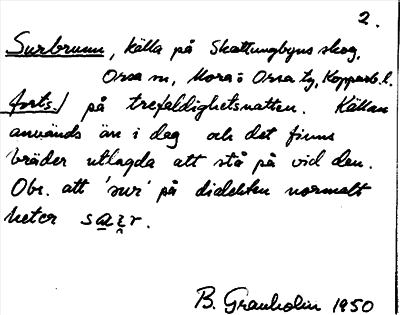 2.
Surbrunn, källa på Skattungbyns skog,
Orsa sn, Mora o Orsa tg, Kopparb. l.
forts/ på trefaldighetsnatten. Källan
används än i dag och det finns
bräder utlagda att stå på vid den.
Obs. att 'sur' på dialekten normalt
heter
B. Granholm 1950